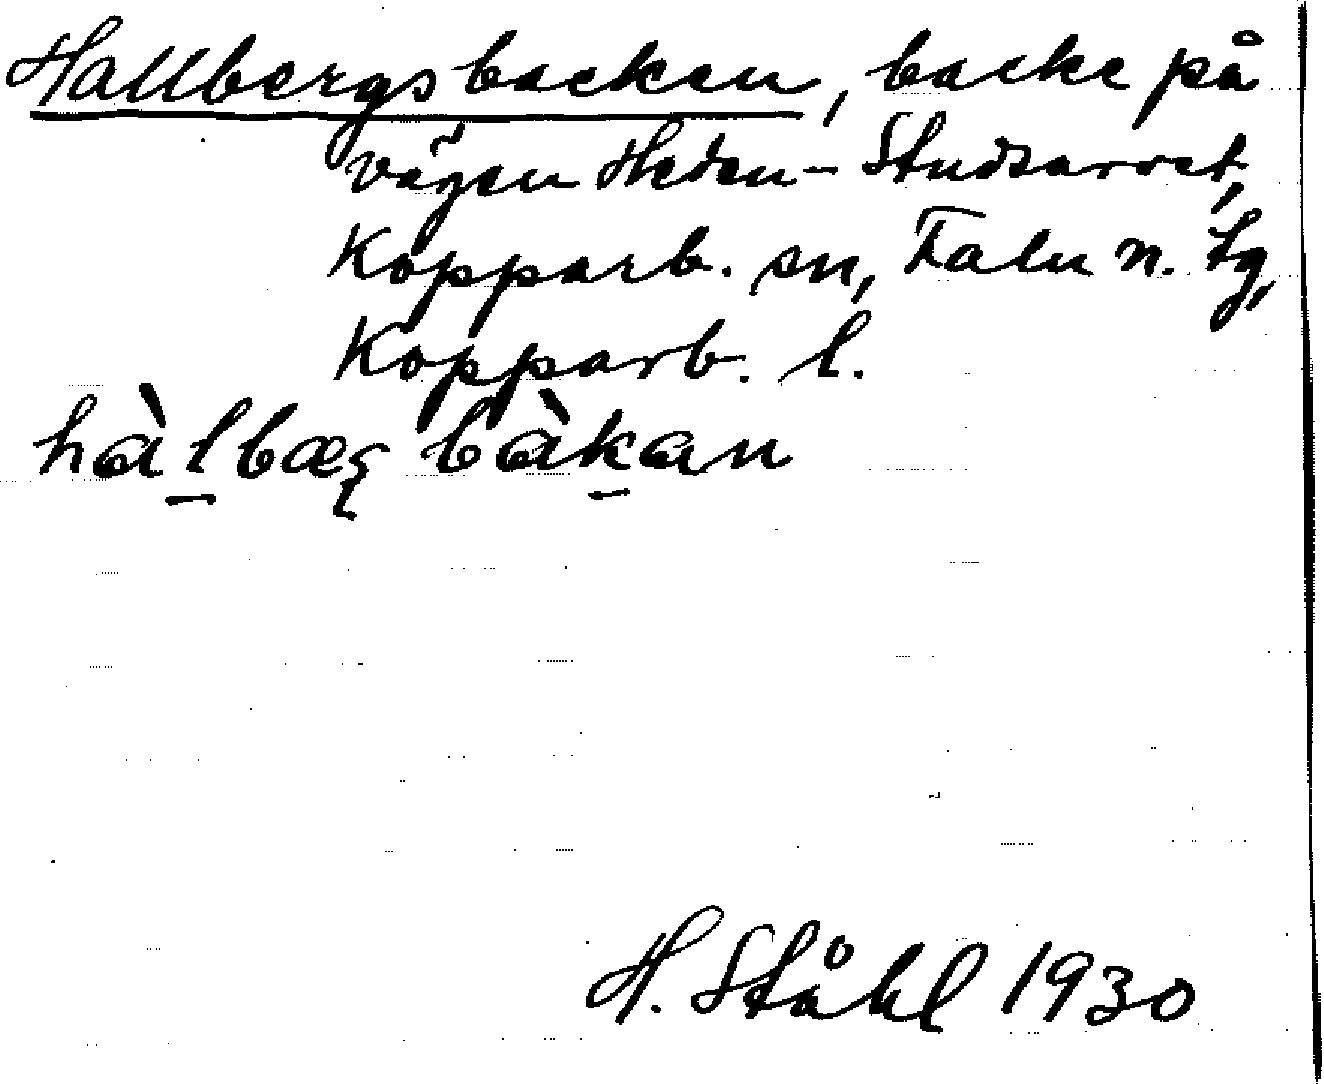 Hallbergsbacken, backe på
vägen Heden - Studsarvet,
Kopparb. sn, Falu n. tg,
Kopparb. l.
hàlbæȿ bàkan
H. Ståhl 1930